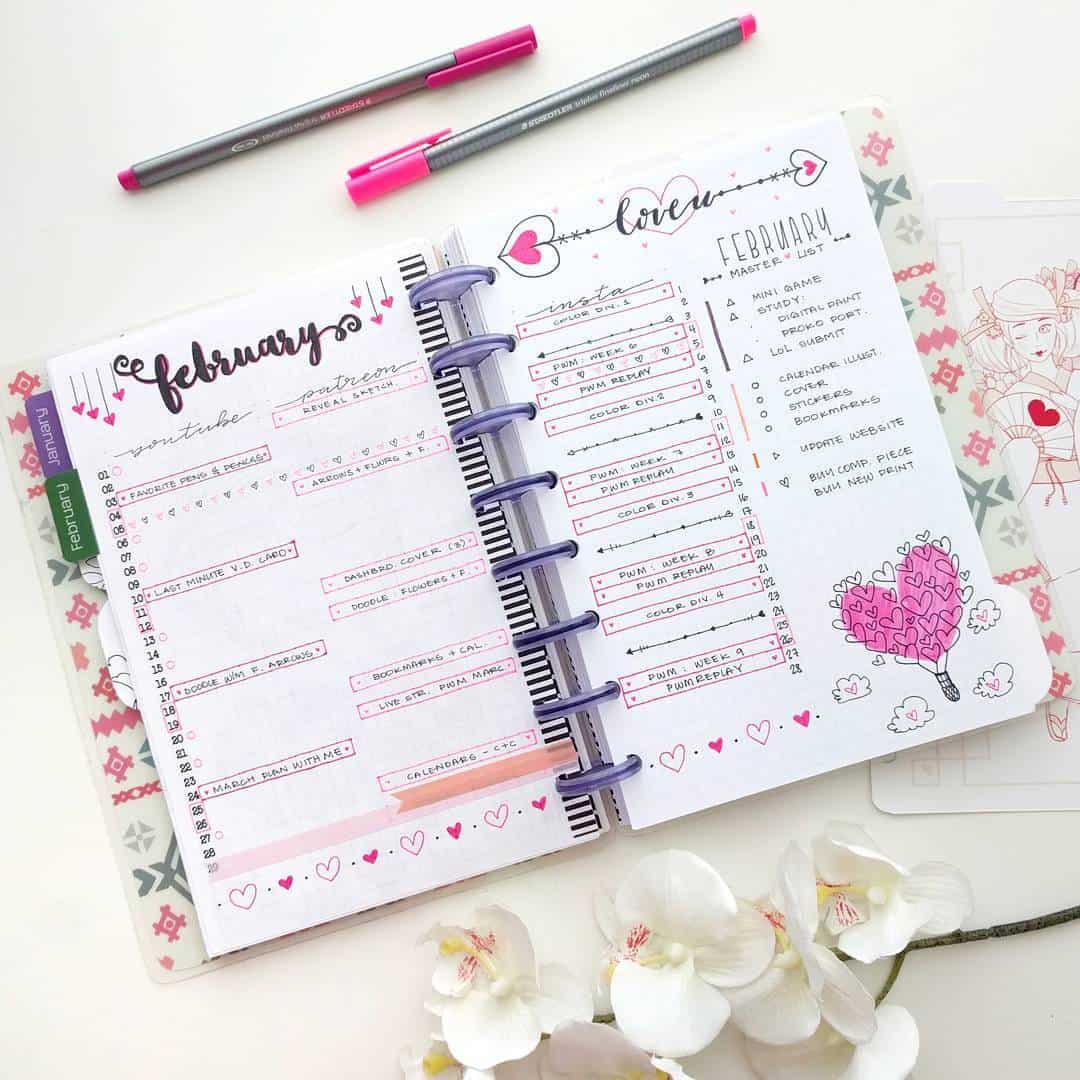 STAEDTLER
STAEDTLER triplus fineliner neon
January
February
february
youtube
patreon
REVEAL SKETCH
01
02
FAVORITE PENS & PENCILS
03
ARROWS + FLWRS + F.
04
05
06
07
08
LAST MINUTE V.D. CARD
DASHBRD. COVER (3)
09
10
DOODLE: FLOWERS + F.
11
12
13
14
15
BOOKMARKS + CAL.
16
DOODLE W/M F. ARROWS
17
LIVE STR: PWM MARC.
18
19
20
21
22
CALENDARS - C+C
23
MARCH PLAN WITH ME
24
25
26
27
28
29
love u
insta
COLOR DIV. 1
1
2
3
PWM: WEEK 6
4
5
PWM REPLAY
6
7
COLOR DIV. 2
8
9
10
PWM: WEEK 7
11
PWM REPLAY
12
13
COLOR DIV. 3
14
15
16
17
PWM: WEEK 8
18
PWM REPLAY
19
20
COLOR DIV. 4
21
22
23
24
PWM: WEEK 9
25
PWM REPLAY
26
27
28
FEBRUARY
MASTER LIST
MINI GAME
STUDY:
DIGITAL PAINT
PROKO PORT.
LOL SUBMIT
CALENDAR ILLUST.
COVER
STICKERS
BOOKMARKS
UPDATE WEBSITE
BUY COMP. PIECE
BUY NEW PRINT